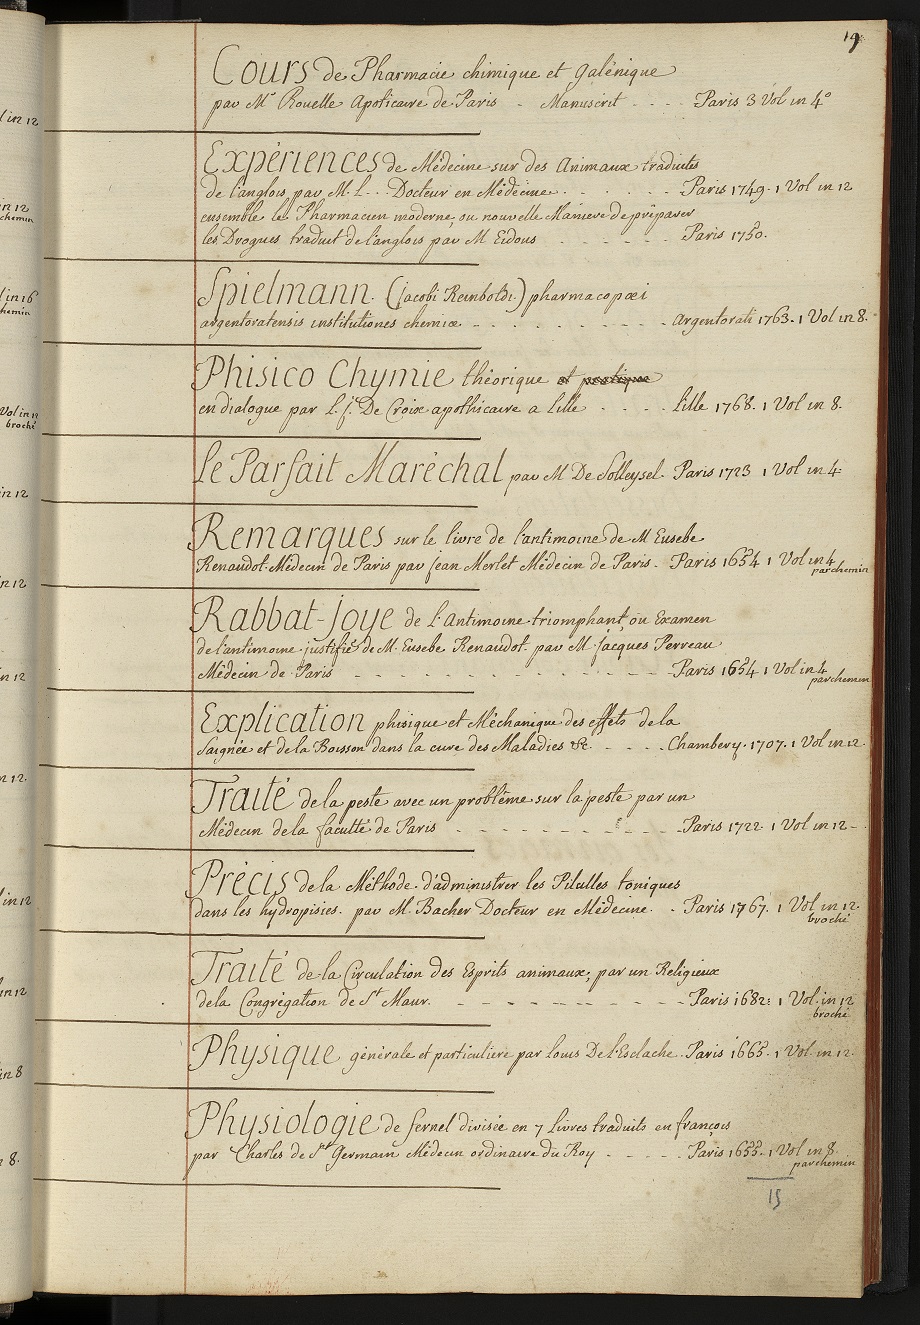 19
Cours de Pharmacie chimique et galénique
par Mr Rouelle Apoticaire de Paris - Manuscrit - - - - Paris 3 Vol in 4°
Expériences de Médecine sur des Animaux traduites
de l'anglois par M. L... Docteur en Médecine - - - - - - Paris 1749. 1 Vol in 12
ensemble le Pharmacien moderne, ou nouvelle Maniere de préparer
les Drogues traduit de l'anglois par M Eidous - - - - - - - Paris 1750.
Spielmann. (jacobi Reinboldi.) pharmacopœi
argentoratensis institutiones chemiæ - - - - - - - - - - Argentorati 1763. 1 Vol in 8.
Phisico Chymie théorique et pratique
en dialogue par L. f. De Croix apothicaire a Lille - - - - Lille 1768. 1 Vol in 8.
Le Parfait Maréchal par M De Solleysel. Paris 1723 1 Vol in 4
Remarques sur le livre de l'antimoine de M Eusebe
Renaudot Médecin de Paris par jean Merlet Médecin de Paris - Paris 1654 1 Vol in 4
parchemin
Rabbat-joye de l'Antimoine triomphant, ou Examen
de l'antimoine justifié de M. Eusebe Renaudot par M. jacques Perreau
Médecin de Paris - - - - - - - - - - - - - - - Paris 1654 1 Vol in 4
parchemin
Explication phisique et Méchanique des effets de la
Saignée et de la Boisson dans la cure des Maladies &c. - - - - Chambery. 1707. 1 Vol in 12
Traité de la peste avec un problême sur la peste par un
Médecin de la faculté de Paris - - - - - - - - - - - Paris 1722. 1 Vol in 12 -
Précis de la Méthode d'administrer les Pilulles toniques
dans les hydropisies. par M. Bacher Docteur en Médecine. - Paris 1767. 1 Vol in 12.
broché
Traité de la Circulation des Esprits animaux, par un Religieux
de la Congrégation de St Maur. - - - - - - - - - - Paris 1682. 1 Vol. in 12
broché
Physique générale et particuliere par Louis De l'Esclache. Paris 1665. 1 Vol in 12.
Physiologie de fernel divisée en 7 Livres traduits en françois
par Charles de St Germain Médecin ordinaire du Roy - - - - - Paris 1655. 1 Vol in 8.
parchemin
15